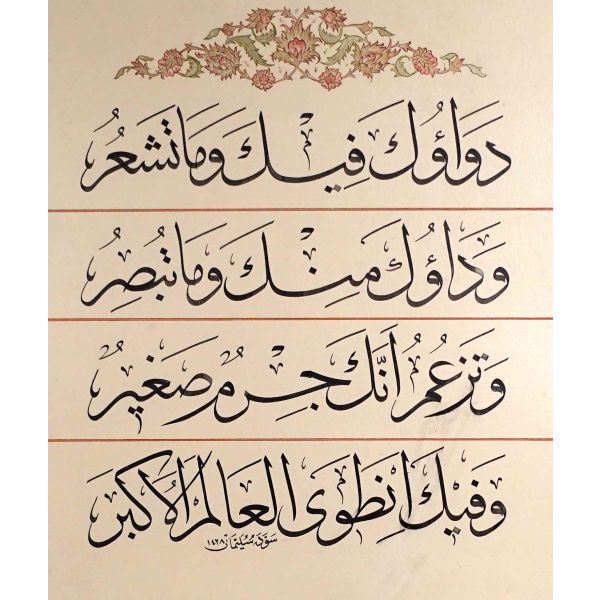 دَوَاؤُكَ فِيكَ وَمَا تَشعُرُ
وَدَاؤُكَ مِنكَ وَمَا تُبصِرُ
وَتَزعُمُ أَنَّكَ جِرمٌ صَغِيرٌ
وَفِيكَ انطَوَى العَالَمُ الأَكبَرُ
سوّده سليمان ١٤٢٨